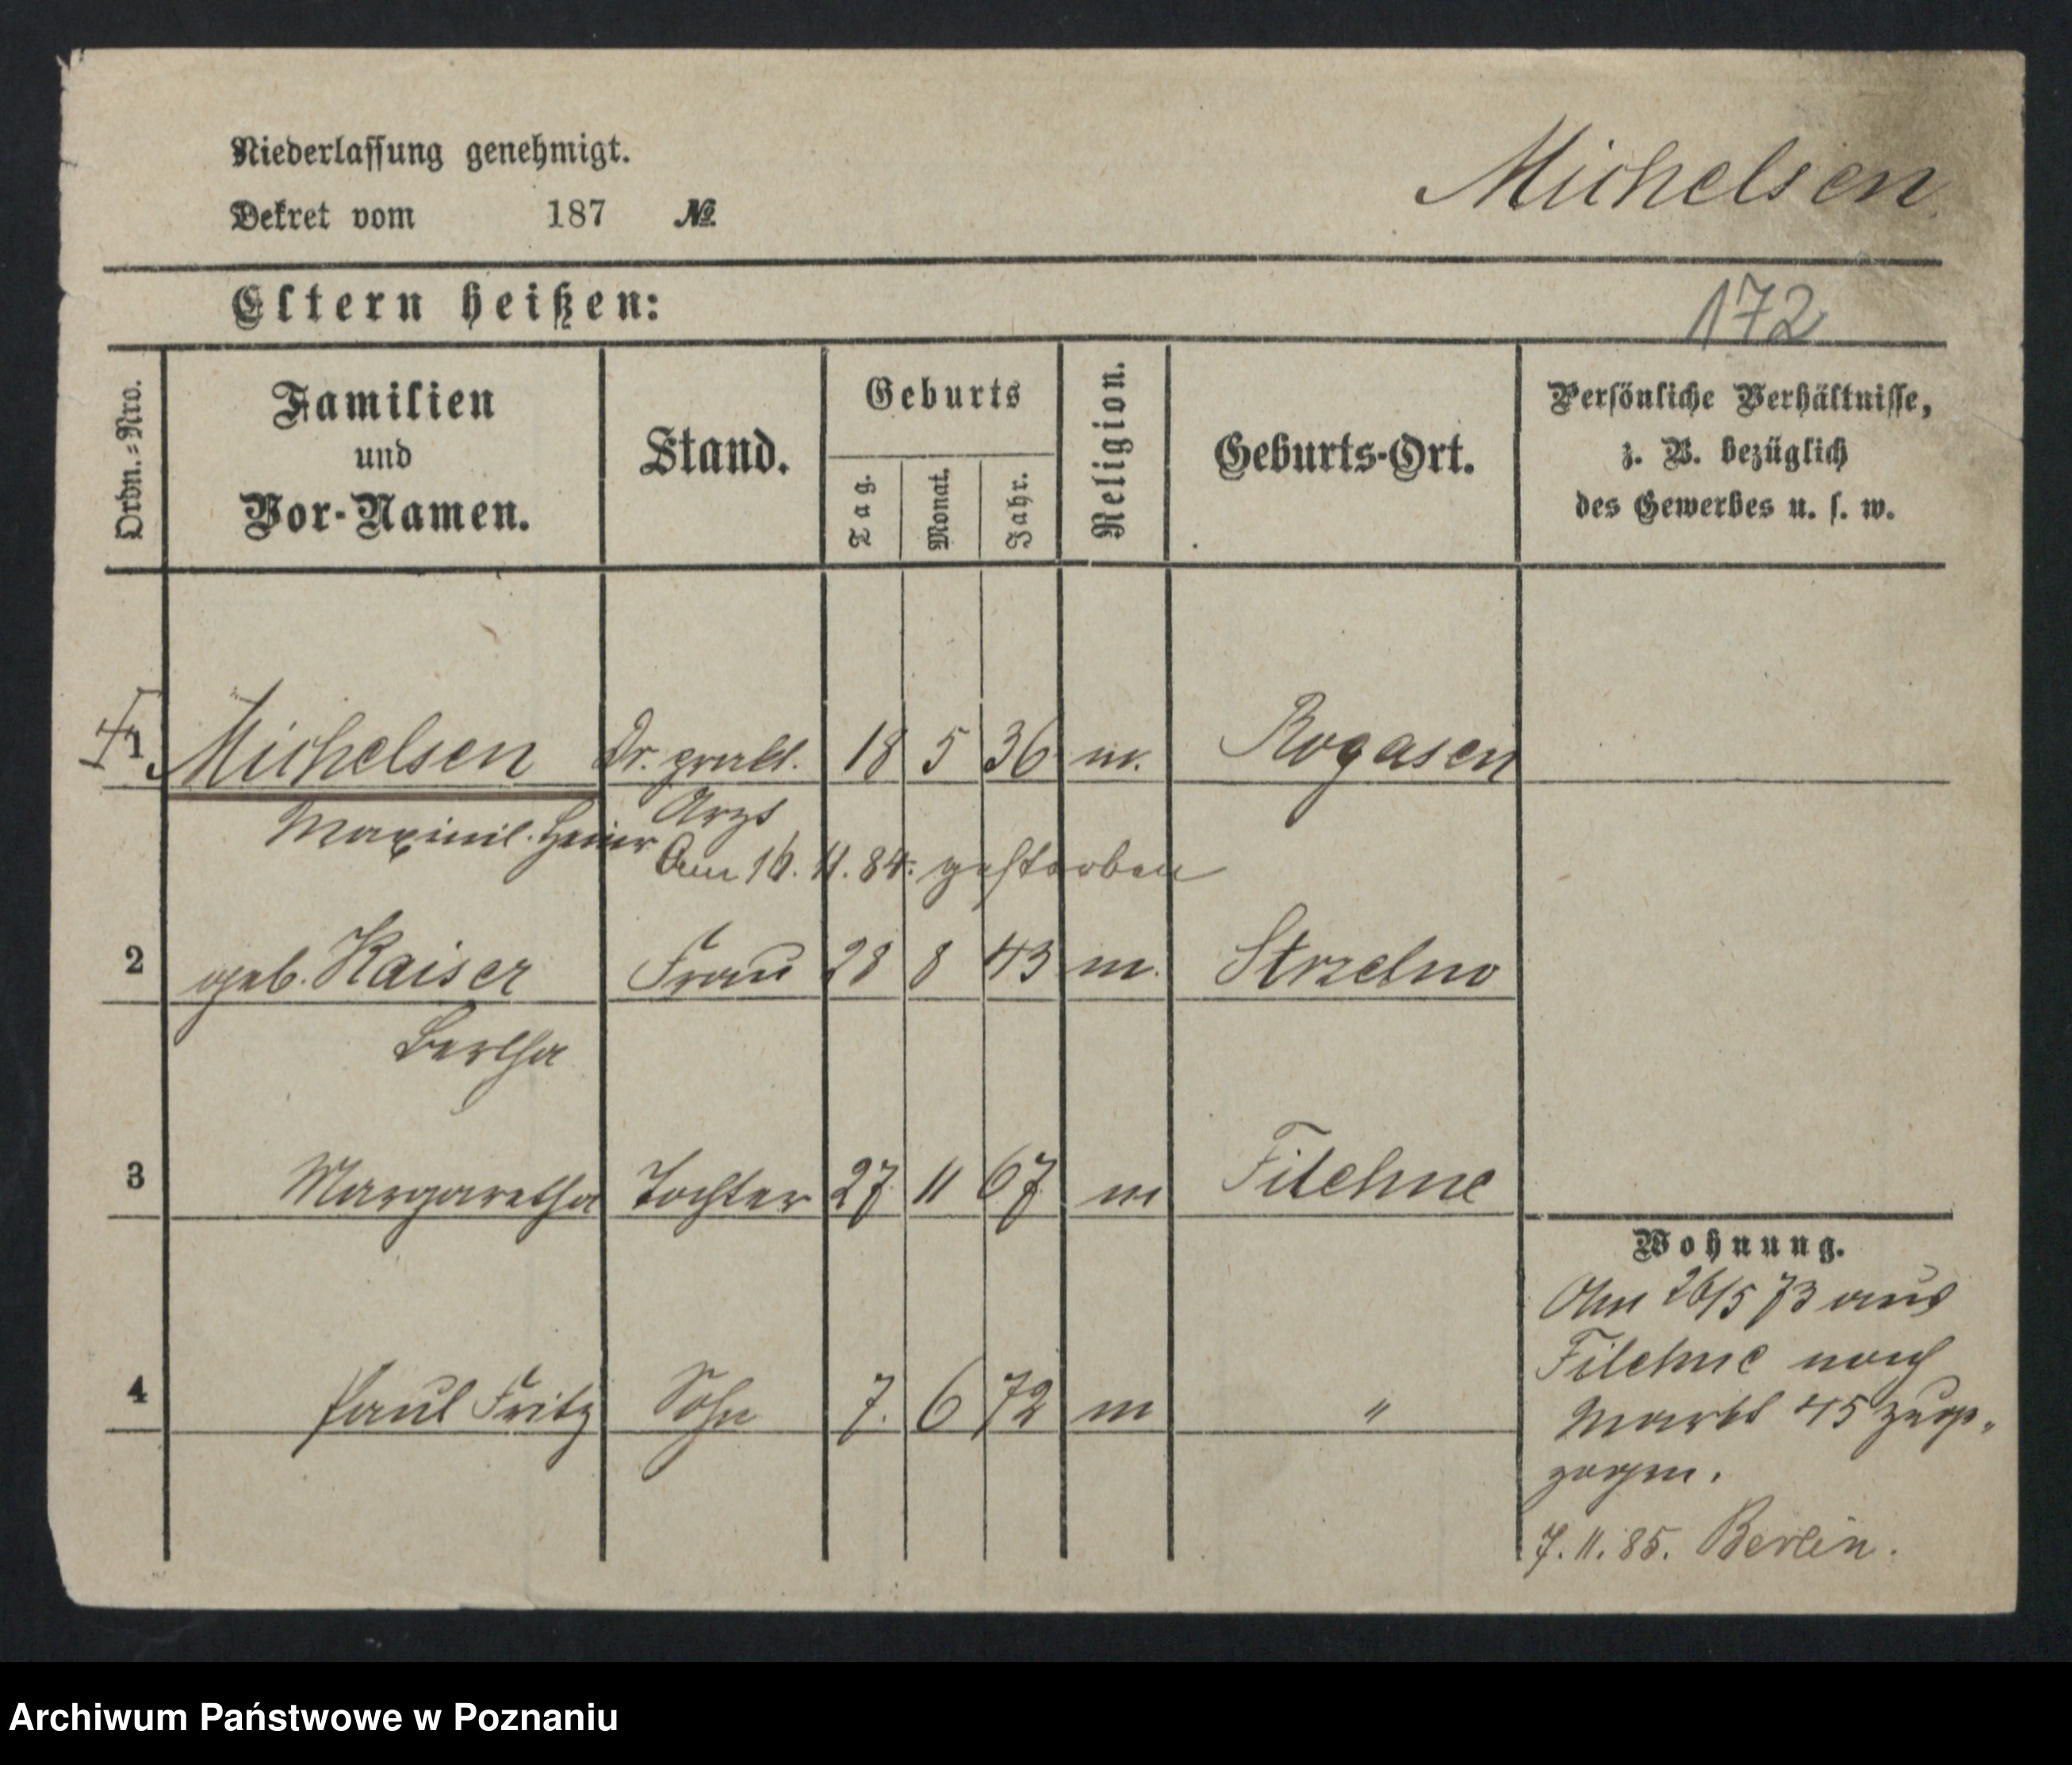 Niederlassung genehmigt.
Dekret vom 187 №
Michelsen.
Eltern heißen:
172
Ordn.-Nro.
Familien
und
Vor-Namen.
Stand.
Geburts
Tag.
Monat.
Jahr.
Religion.
Geburts-Ort.
Persönliche Verhältnisse,
z. B. bezüglich
des Gewerbes u. s. w.
1 Michelsen Dr. prakt. 18 5 36 m. Rogasen
Maximil. Arzt
Am 16. 11. 84. gestorben
2 geb. Kaiser Frau 28 8 43 m. Strzelno
Bertha
3 Margaretha Tochter 27 11 67 m Filehne
4 Paul Fritz Sohn 7. 6 72 m "
Wohnung.
Am 26/5 73 aus
Filehne nach
Markt 45 zuge-
zogen.
7. 11. 85. Berlin.
Archiwum Państwowe w Poznaniu